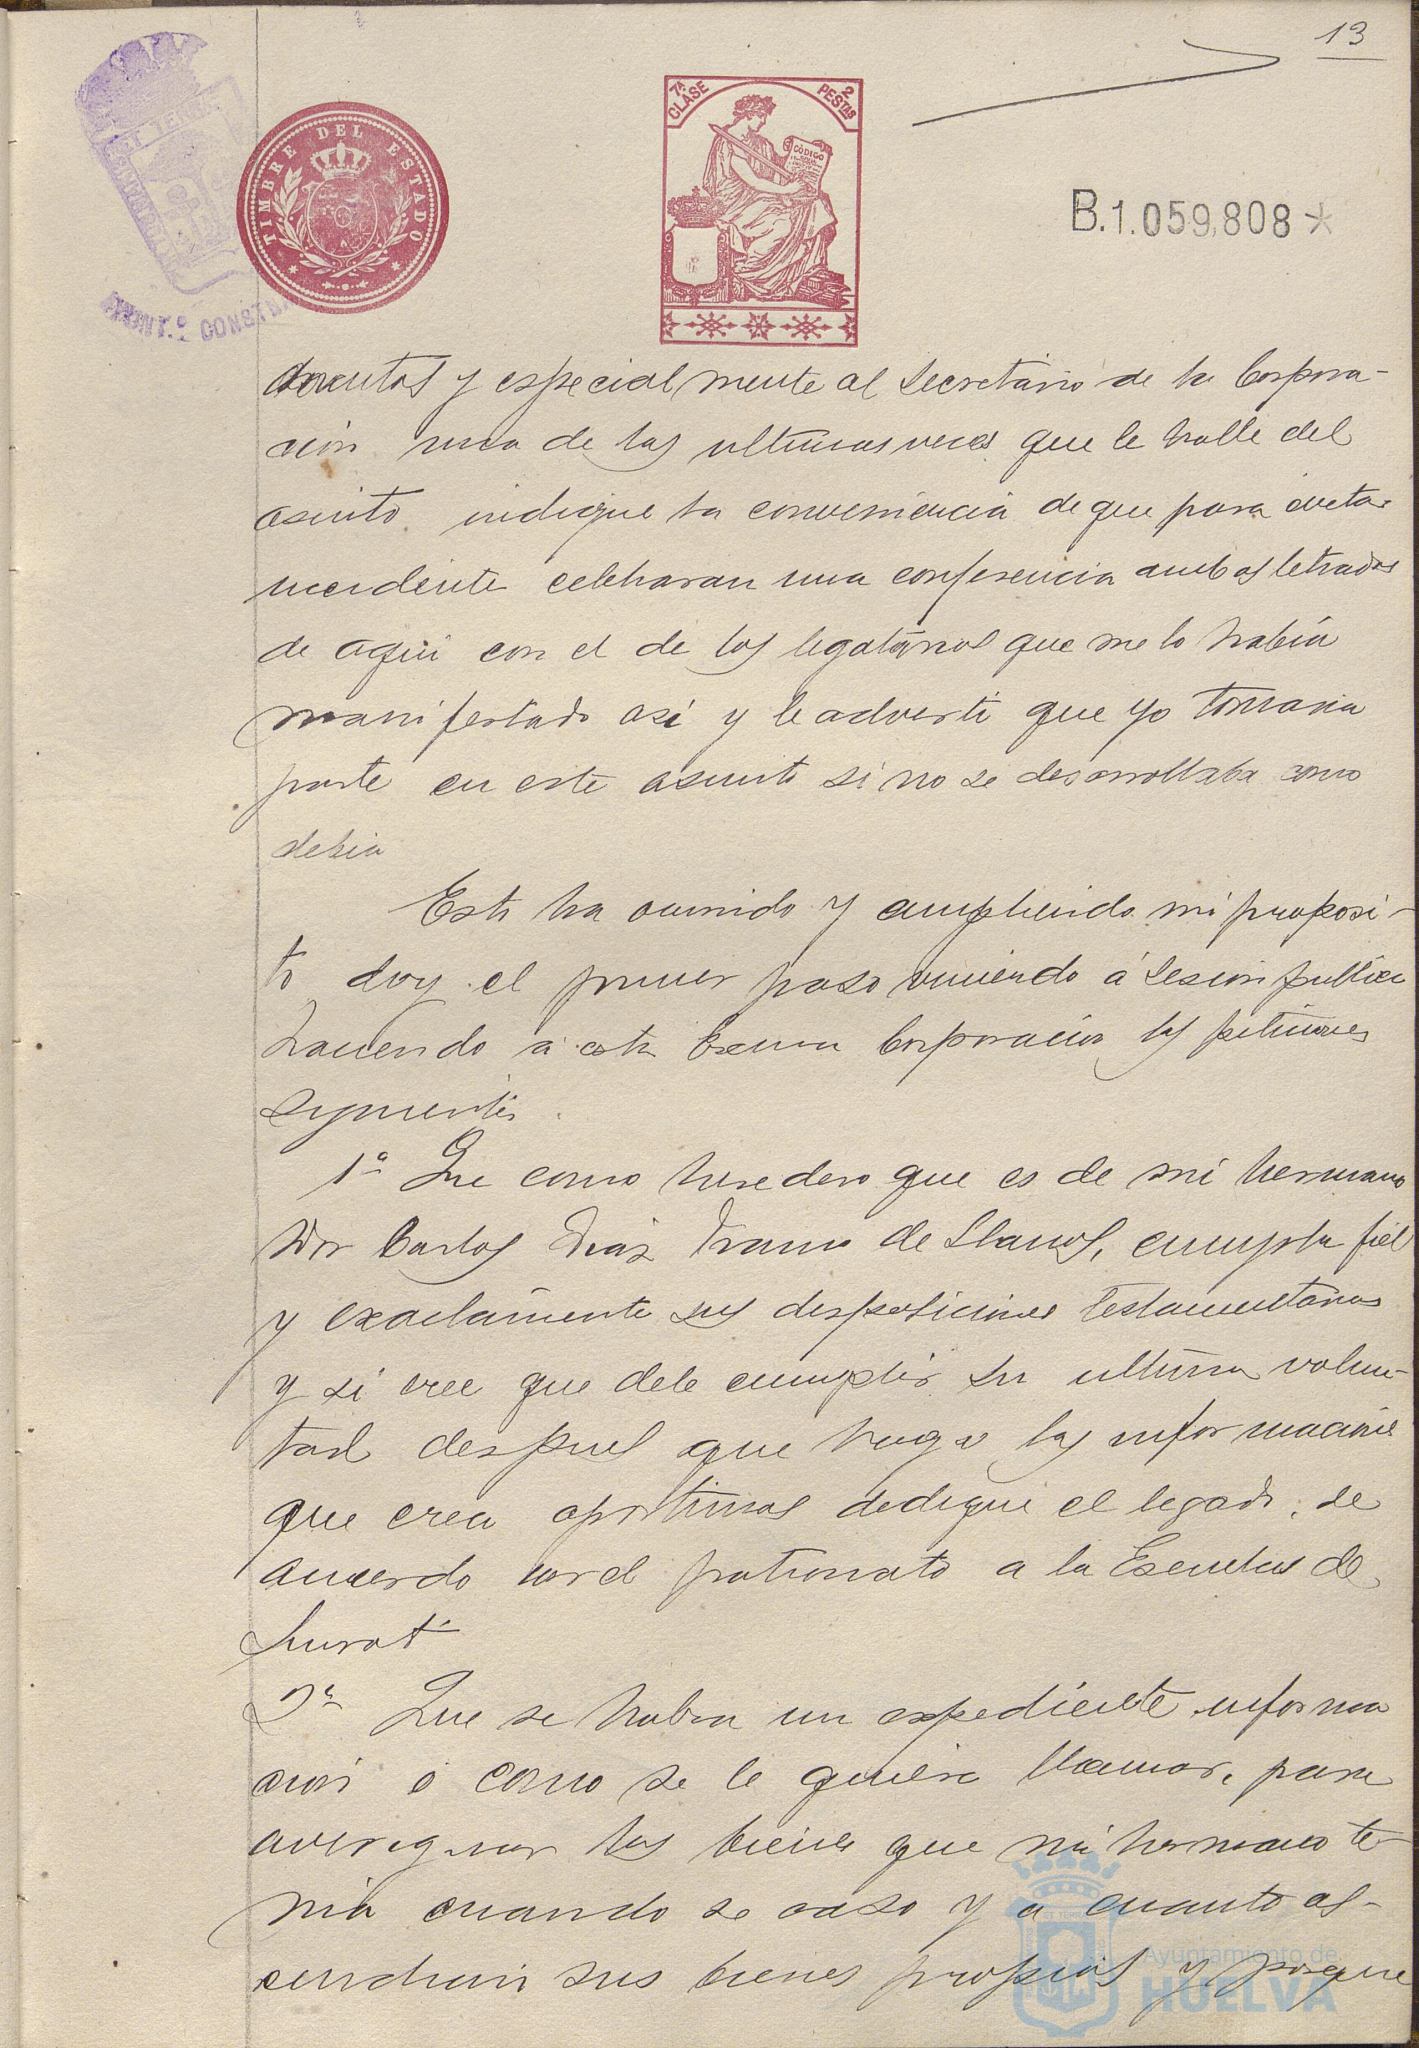 13
TIMBRE DEL ESTADO
7ª CLASE
2 PESTAS
CÓDIGO
B.1.059,808*
CONST
y especialmente al Secretario de la Corpora-
ción una de las ultimas veces que le hallé del
asunto indiqué la conveniencia de que para evitar
celebraran una conferencia ambos letrados
de aqui con el de los legatarios que me lo había
manifestado asi y le adverti que yo tomaria
parte en este asunto si no se desarrollaba como
debia
Esto ha ocurrido y cumpliendo mi proposi-
to doy el primer paso viniendo á sesion publica
haciendo á esta Excma Corporacion las peticiones
siguientes
1ª Que como heredero que es de mi hermano
Don Carlos Diaz Franco de Llanos, cumpla fiel
y exactamente sus disposiciones testamentarias
y si cree que debe cumplir su ultima volun-
tad despues que haga las informaciones
que crea oportunas dedique el legado, de
acuerdo con el patronato a la Escuelas de
Siurot
2ª Que se habra un expediente informa
cion o como se le quiera llamar, para
averiguar los bienes que mi hermano te-
nia cuando se caso y a cuanto as-
cendian sus bienes propios y porque
Ayuntamiento de
HUELVA